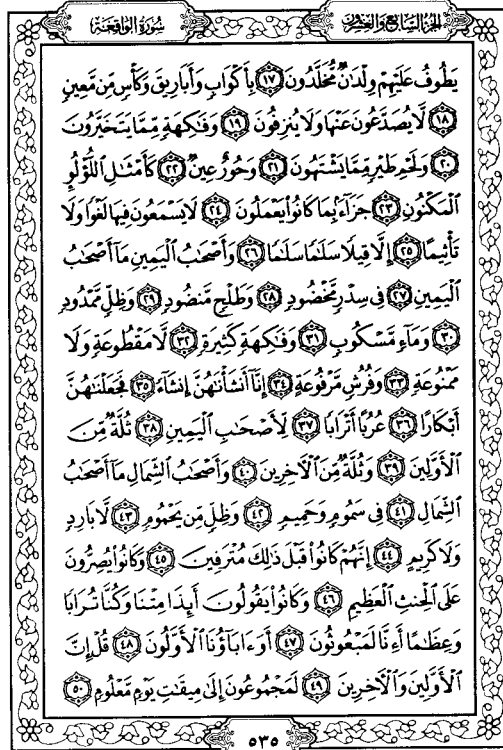 سورة الواقعة
الجزء السابع والعشرون
يَطُوفُ عَلَيْهِمْ وِلْدَٰنٌ مُّخَلَّدُونَ ١٧ بِأَكْوَابٍ وَأَبَارِيقَ وَكَأْسٍ مِّن مَّعِينٍ
١٨ لَّا يُصَدَّعُونَ عَنْهَا وَلَا يُنزِفُونَ ١٩ وَفَٰكِهَةٍ مِّمَّا يَتَخَيَّرُونَ
٢٠ وَلَحْمِ طَيْرٍ مِّمَّا يَشْتَهُونَ ٢١ وَحُورٌ عِينٌ ٢٢ كَأَمْثَٰلِ اللُّؤْلُوِٕ
الْمَكْنُونِ ٢٣ جَزَآءًۢ بِمَا كَانُوا۟ يَعْمَلُونَ ٢٤ لَا يَسْمَعُونَ فِيهَا لَغْوًا وَلَا
تَأْثِيمًا ٢٥ إِلَّا قِيلًا سَلَٰمًا سَلَٰمًا ٢٦ وَأَصْحَٰبُ الْيَمِينِ مَآ أَصْحَٰبُ
الْيَمِينِ ٢٧ فِى سِدْرٍ مَّخْضُودٍ ٢٨ وَطَلْحٍ مَّنضُودٍ ٢٩ وَظِلٍّ مَّمْدُودٍ
٣٠ وَمَآءٍ مَّسْكُوبٍ ٣١ وَفَٰكِهَةٍ كَثِيرَةٍ ٣٢ لَّا مَقْطُوعَةٍ وَلَا
مَمْنُوعَةٍ ٣٣ وَفُرُشٍ مَّرْفُوعَةٍ ٣٤ إِنَّآ أَنشَأْنَٰهُنَّ إِنشَآءً ٣٥ فَجَعَلْنَٰهُنَّ
أَبْكَارًا ٣٦ عُرُبًا أَتْرَابًا ٣٧ لِّأَصْحَٰبِ الْيَمِينِ ٣٨ ثُلَّةٌ مِّنَ
الْأَوَّلِينَ ٣٩ وَثُلَّةٌ مِّنَ الْءَاخِرِينَ ٤٠ وَأَصْحَٰبُ الشِّمَالِ مَآ أَصْحَٰبُ
الشِّمَالِ ٤١ فِى سَمُومٍ وَحَمِيمٍ ٤٢ وَظِلٍّ مِّن يَحْمُومٍ ٤٣ لَّا بَارِدٍ
وَلَا كَرِيمٍ ٤٤ إِنَّهُمْ كَانُوا۟ قَبْلَ ذَٰلِكَ مُتْرَفِينَ ٤٥ وَكَانُوا۟ يُصِرُّونَ
عَلَى الْحِنثِ الْعَظِيمِ ٤٦ وَكَانُوا۟ يَقُولُونَ أَئِذَا مِتْنَا وَكُنَّا تُرَابًا
وَعِظَٰمًا أَءِنَّا لَمَبْعُوثُونَ ٤٧ أَوَءَابَآؤُنَا الْأَوَّلُونَ ٤٨ قُلْ إِنَّ
الْأَوَّلِينَ وَالْءَاخِرِينَ ٤٩ لَمَجْمُوعُونَ إِلَىٰ مِيقَٰتِ يَوْمٍ مَّعْلُومٍ ٥٠
٥٣٥